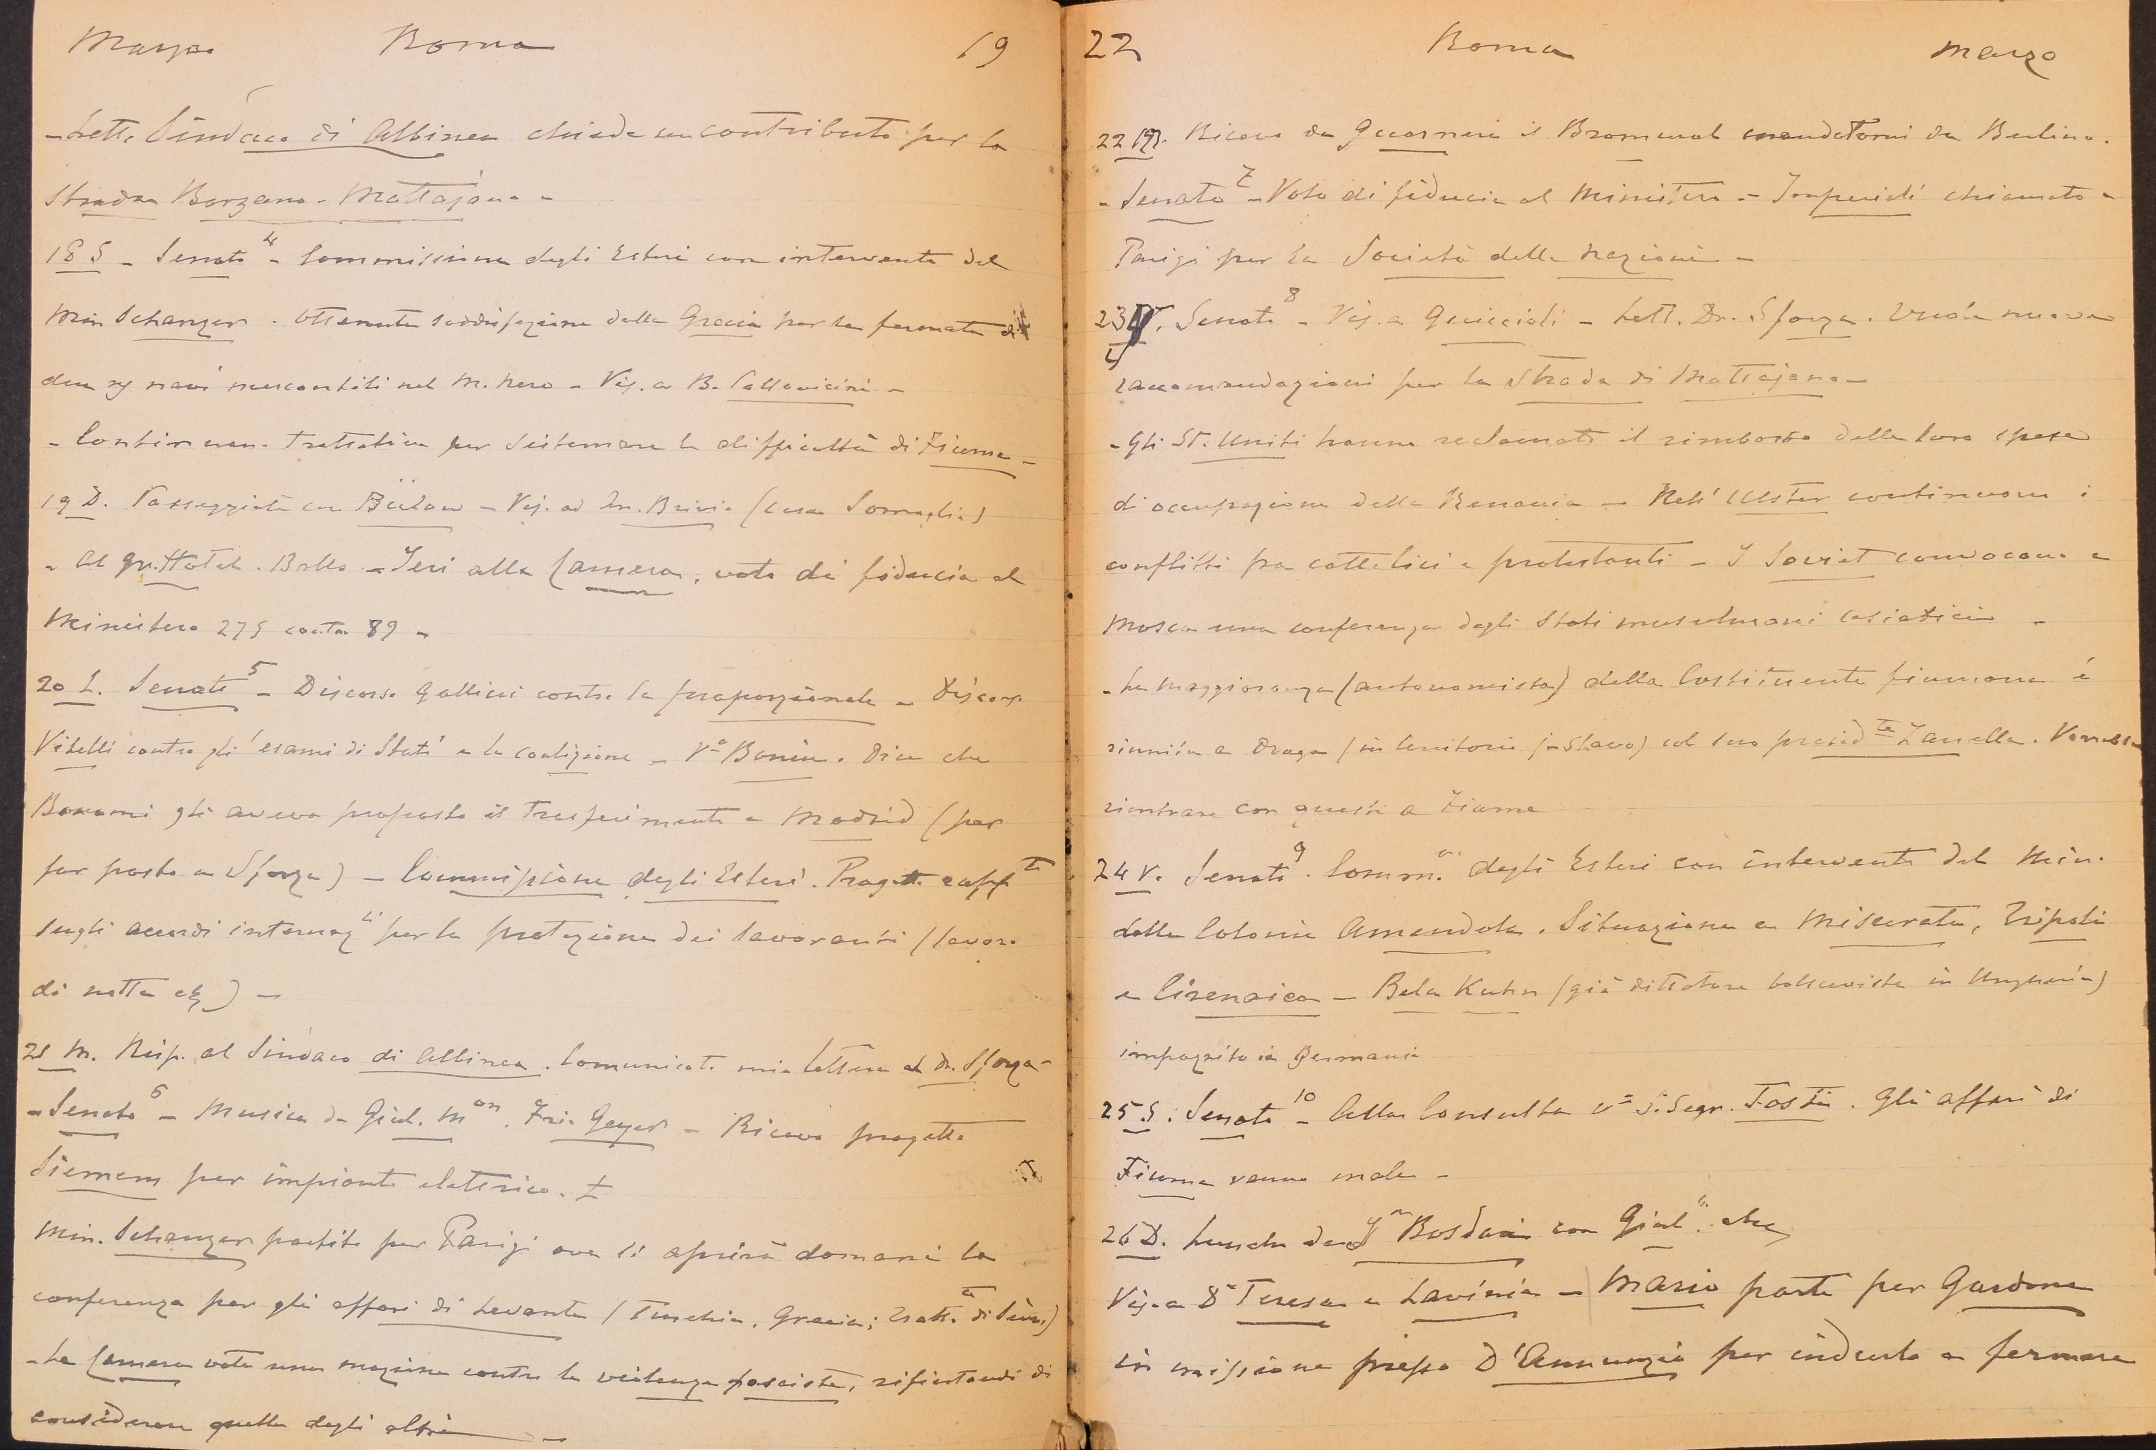 Marzo Roma 19
- Lett. Sindaco di Albinea chiede un contributo per la
strada Borzano - Mattajano -
18 S - Senato 4 - Commissione degli Esteri con intervento del
Min Schanzer. Ottenuta soddisfazione dalla Grecia per la fermata di
due navi mercantili nel M. Nero - Vis. a B. Pallavicini -
- Continuano trattative per sistemare le difficoltà di Fiume -
19 D. Passeggiata con Bülow - Vis. ad Brivio (casa Somaglia)
- Al Gr. Hotel. Ballo - Ieri alla Camera, voto di fiducia al
Ministero 275 contro 89 -
20 L. Senato 5 - Discorso Gallini contro la proporzionale - Discorso
Vitelli contro gli 'esami di Stato' e la coalizione - Va Bonin. Dice che
Bonomi gli aveva proposto il trasferimento a Madrid (per
far posto a Sforza) - Commissione degli Esteri. Progetto
sugli accordi internazli per la protezione dei lavoranti (lavoro
di notte etc) -
21 M. Risp. al Sindaco di Albinea. Comunicato mia lettera al Dr. Sforza -
- Senato 6 - Musica da Giul. Geyer - Ricevo progetto
Siemens per impianto elettrico.
Min. Schanzer partito per Parigi ove si aprirà domani la
conferenza per gli affari di Levante (Turchia, Grecia; Tratto di Sèvres)
- La Camera vota una mozione contro la violenza fascista, rifiutandosi di
considerare quella degli altri -
22 Roma Marzo
22 M. Ricevo da Guarneri il Bromural mandatomi da Berlino.
- Senato 7 - Voto di fiducia al Ministero - Imperiali chiamato a
Parigi per la Società delle Nazioni -
23 G. Senato 8 - Vis. a Guiccioli - Lett. Dr. Sforza. Vuole nuove
raccomandazioni per la Strada di Mattajano -
- Gli St. Uniti hanno reclamato il rimborso delle loro spese
di occupazione della Renania - Nell' Ulster continuano i
conflitti fra cattolici e protestanti - I Soviet convocano a
Mosca una conferenza degli Stati musulmani asiatici -
- La maggioranza (autonomista) della Costituente fiumana è
riunita a Draga (in territorio j-slavo) col suo presidte Zanella. Vorrebbe
rientrare con questi a Fiume
24 V. Senato 9. Comm. degli Esteri con intervento del Min.
delle Colonie Amendola. Situazione a Misurata, Tripoli
e Cirenaica - Bela Kuhn (già dittatore bolscevista in Ungheria)
impazzito in Germania
25 S. Senato 10 - Alla Consulta va S. Segr. Tosti. Gli affari di
Fiume vanno male -
26 D. Lunch da Bosdari con Giul.
Vis. a Da Teresa e Lavinia - Mario parte per Gardone
in missione presso D'Annunzio per indurlo a fermare